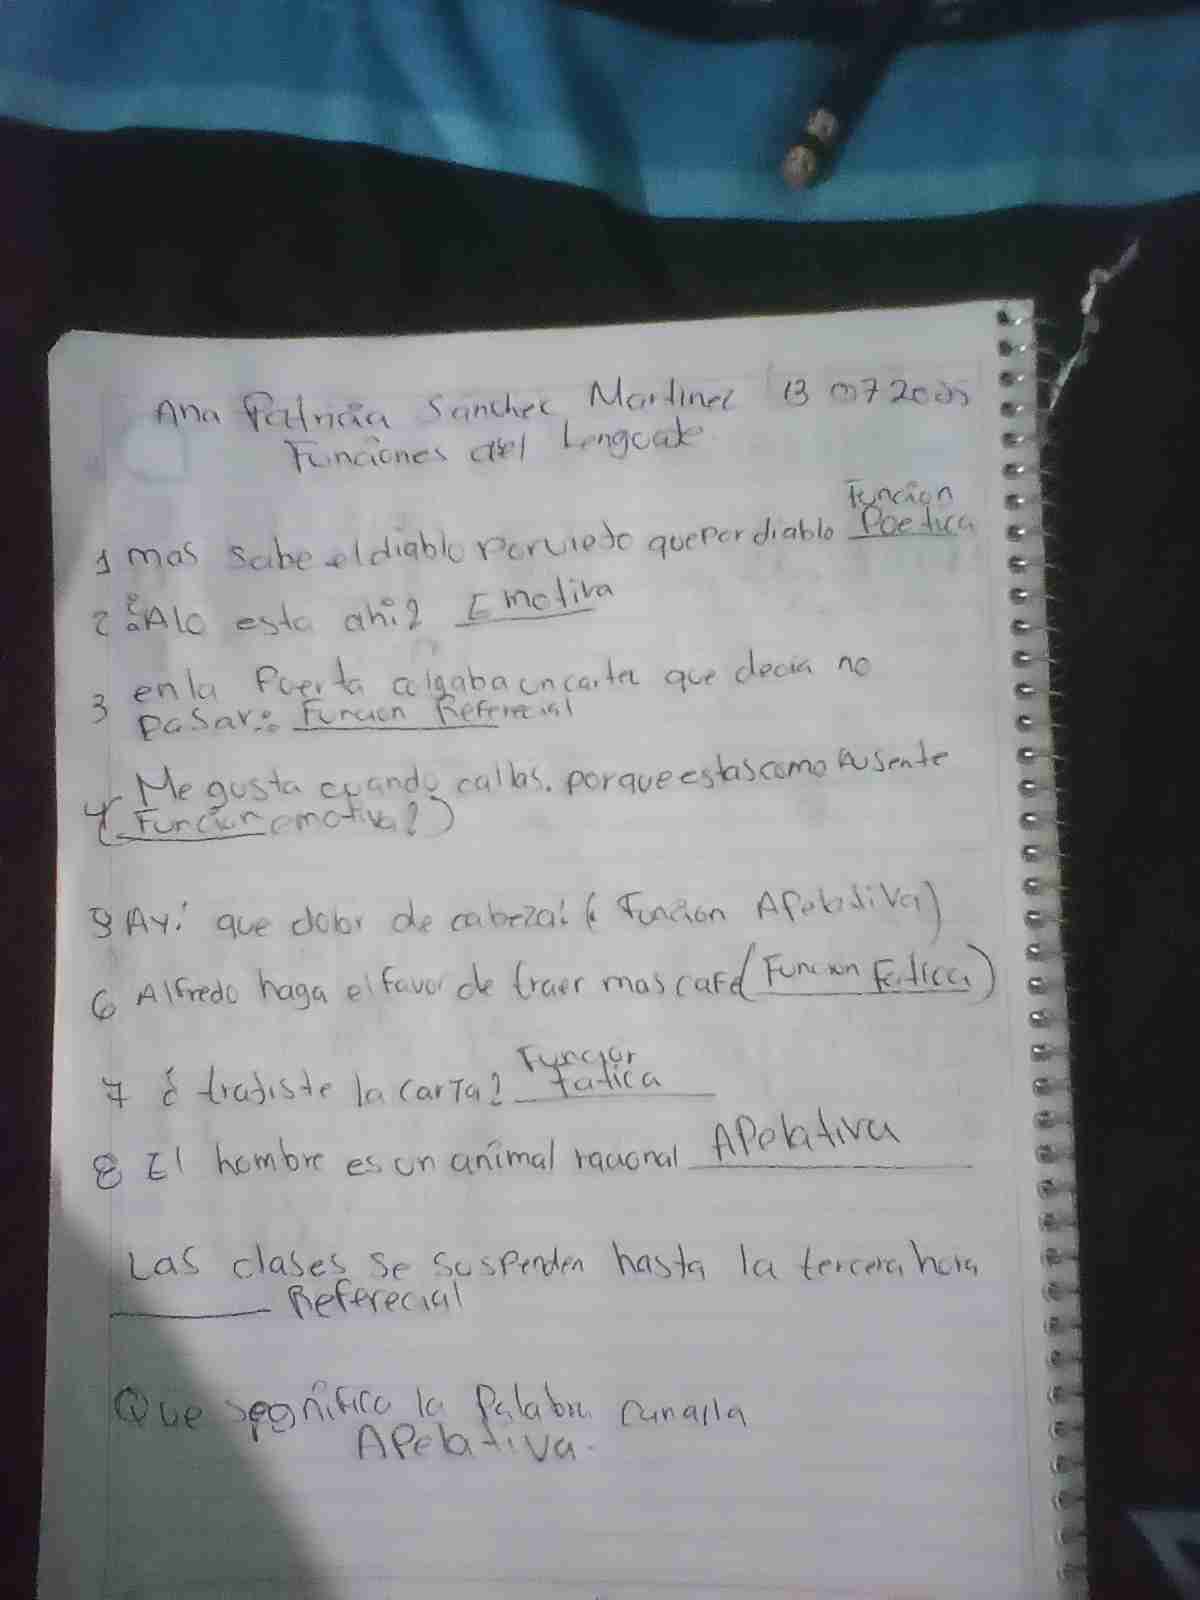 Ana Patricia Sanchez Martinez 13 07 2025
Funciones del Lenguaje
Funcion
1 mas sabe el diablo por viejo que por diablo Poetica
2 ¿Alo esta ahi? Emotiva
3 en la Puerta colgaba un cartel que decia no
pasar: Funcion Referecial
Me gusta cuando callas. porque estas como Ausente
4 (Funcion emotiva?)
5 Ay! que dolor de cabeza! (Funcion Apelativa)
6 Alfredo haga el favor de traer mas cafe (Funcion Fatica)
Funcion
7 ¿ trajiste la carta? fatica
8 El hombre es un animal racional Apelativa
Las clases se suspenden hasta la tercera hora
Referecial
Que segnifica la Palabra canalla
Apelativa.